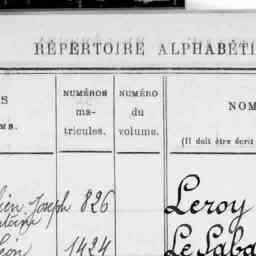 RÉPERTOIRE ALPHABÉTI
S
MS.
NUMÉROS
ma-
tricules.
NUMÉRO
du
volume.
NOM
(Il doit être écrit
ien Joseph 826 Leroy
ntoine
éon 1424 Le Saba